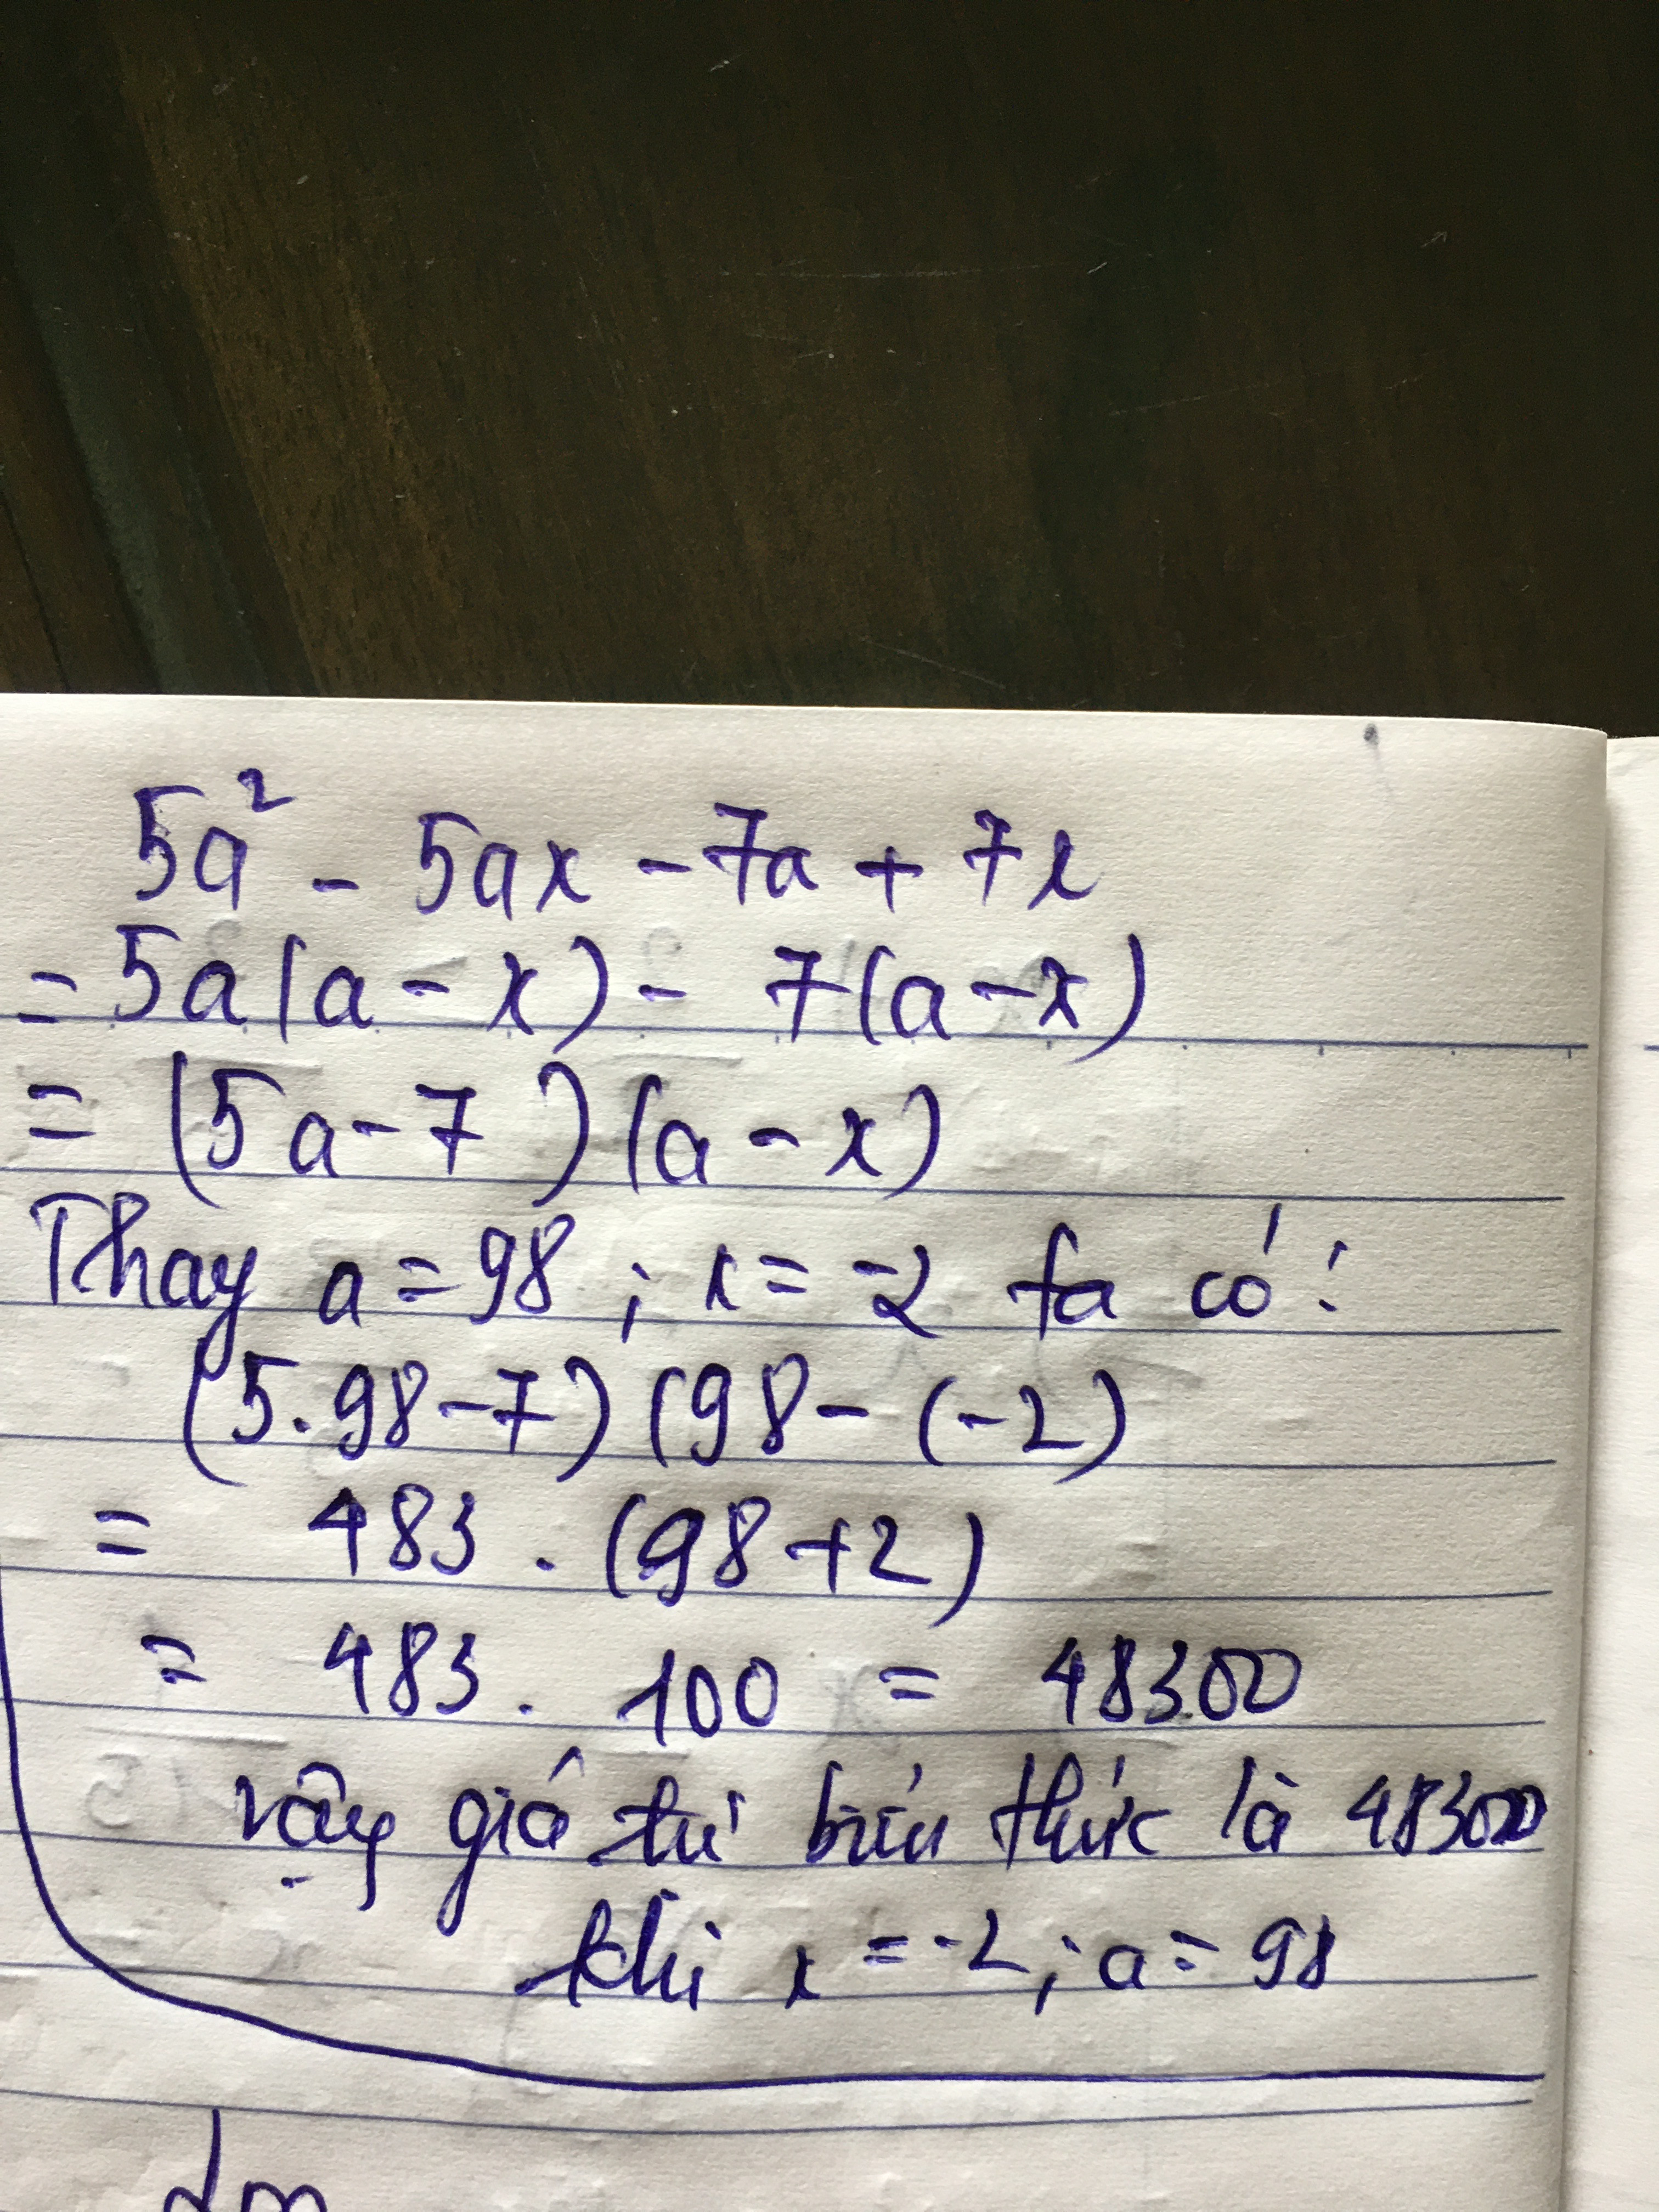 5a² - 5ax - 7a + 7x
= 5a(a - x) - 7(a - x)
= (5a - 7)(a - x)
Thay a = 98 ; x = -2 ta có :
(5.98 - 7)(98 - (-2)
= 483 . (98 + 2)
= 483 . 100 = 48300
vậy giá trị biểu thức là 48300
khi x = -2 ; a = 98